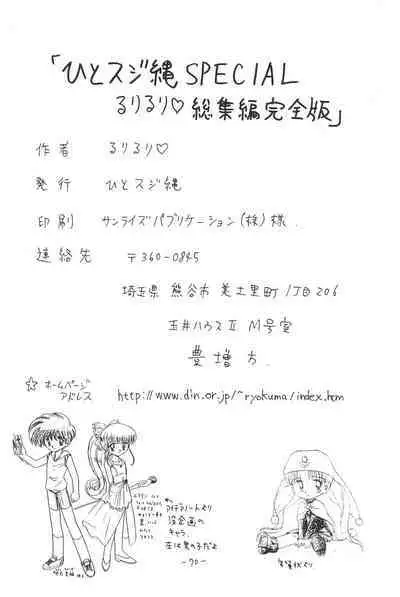 「ひとスジ縄 SPECIAL
るりるり♡ 総集編完全版」
作者 るりるり♡
発行 ひとスジ縄
印刷 サンライズパブリケーション(株)様.
連絡先 〒360-0845
埼玉県 熊谷市 美土里町 1丁目 206
玉井ハウスⅡ M号室
豊増方.
☆ ホームページ
アドレス http://www.din.or.jp/~ryokuma/index.htm
没企画の
キャラ.
左は男の子だよ
-70-